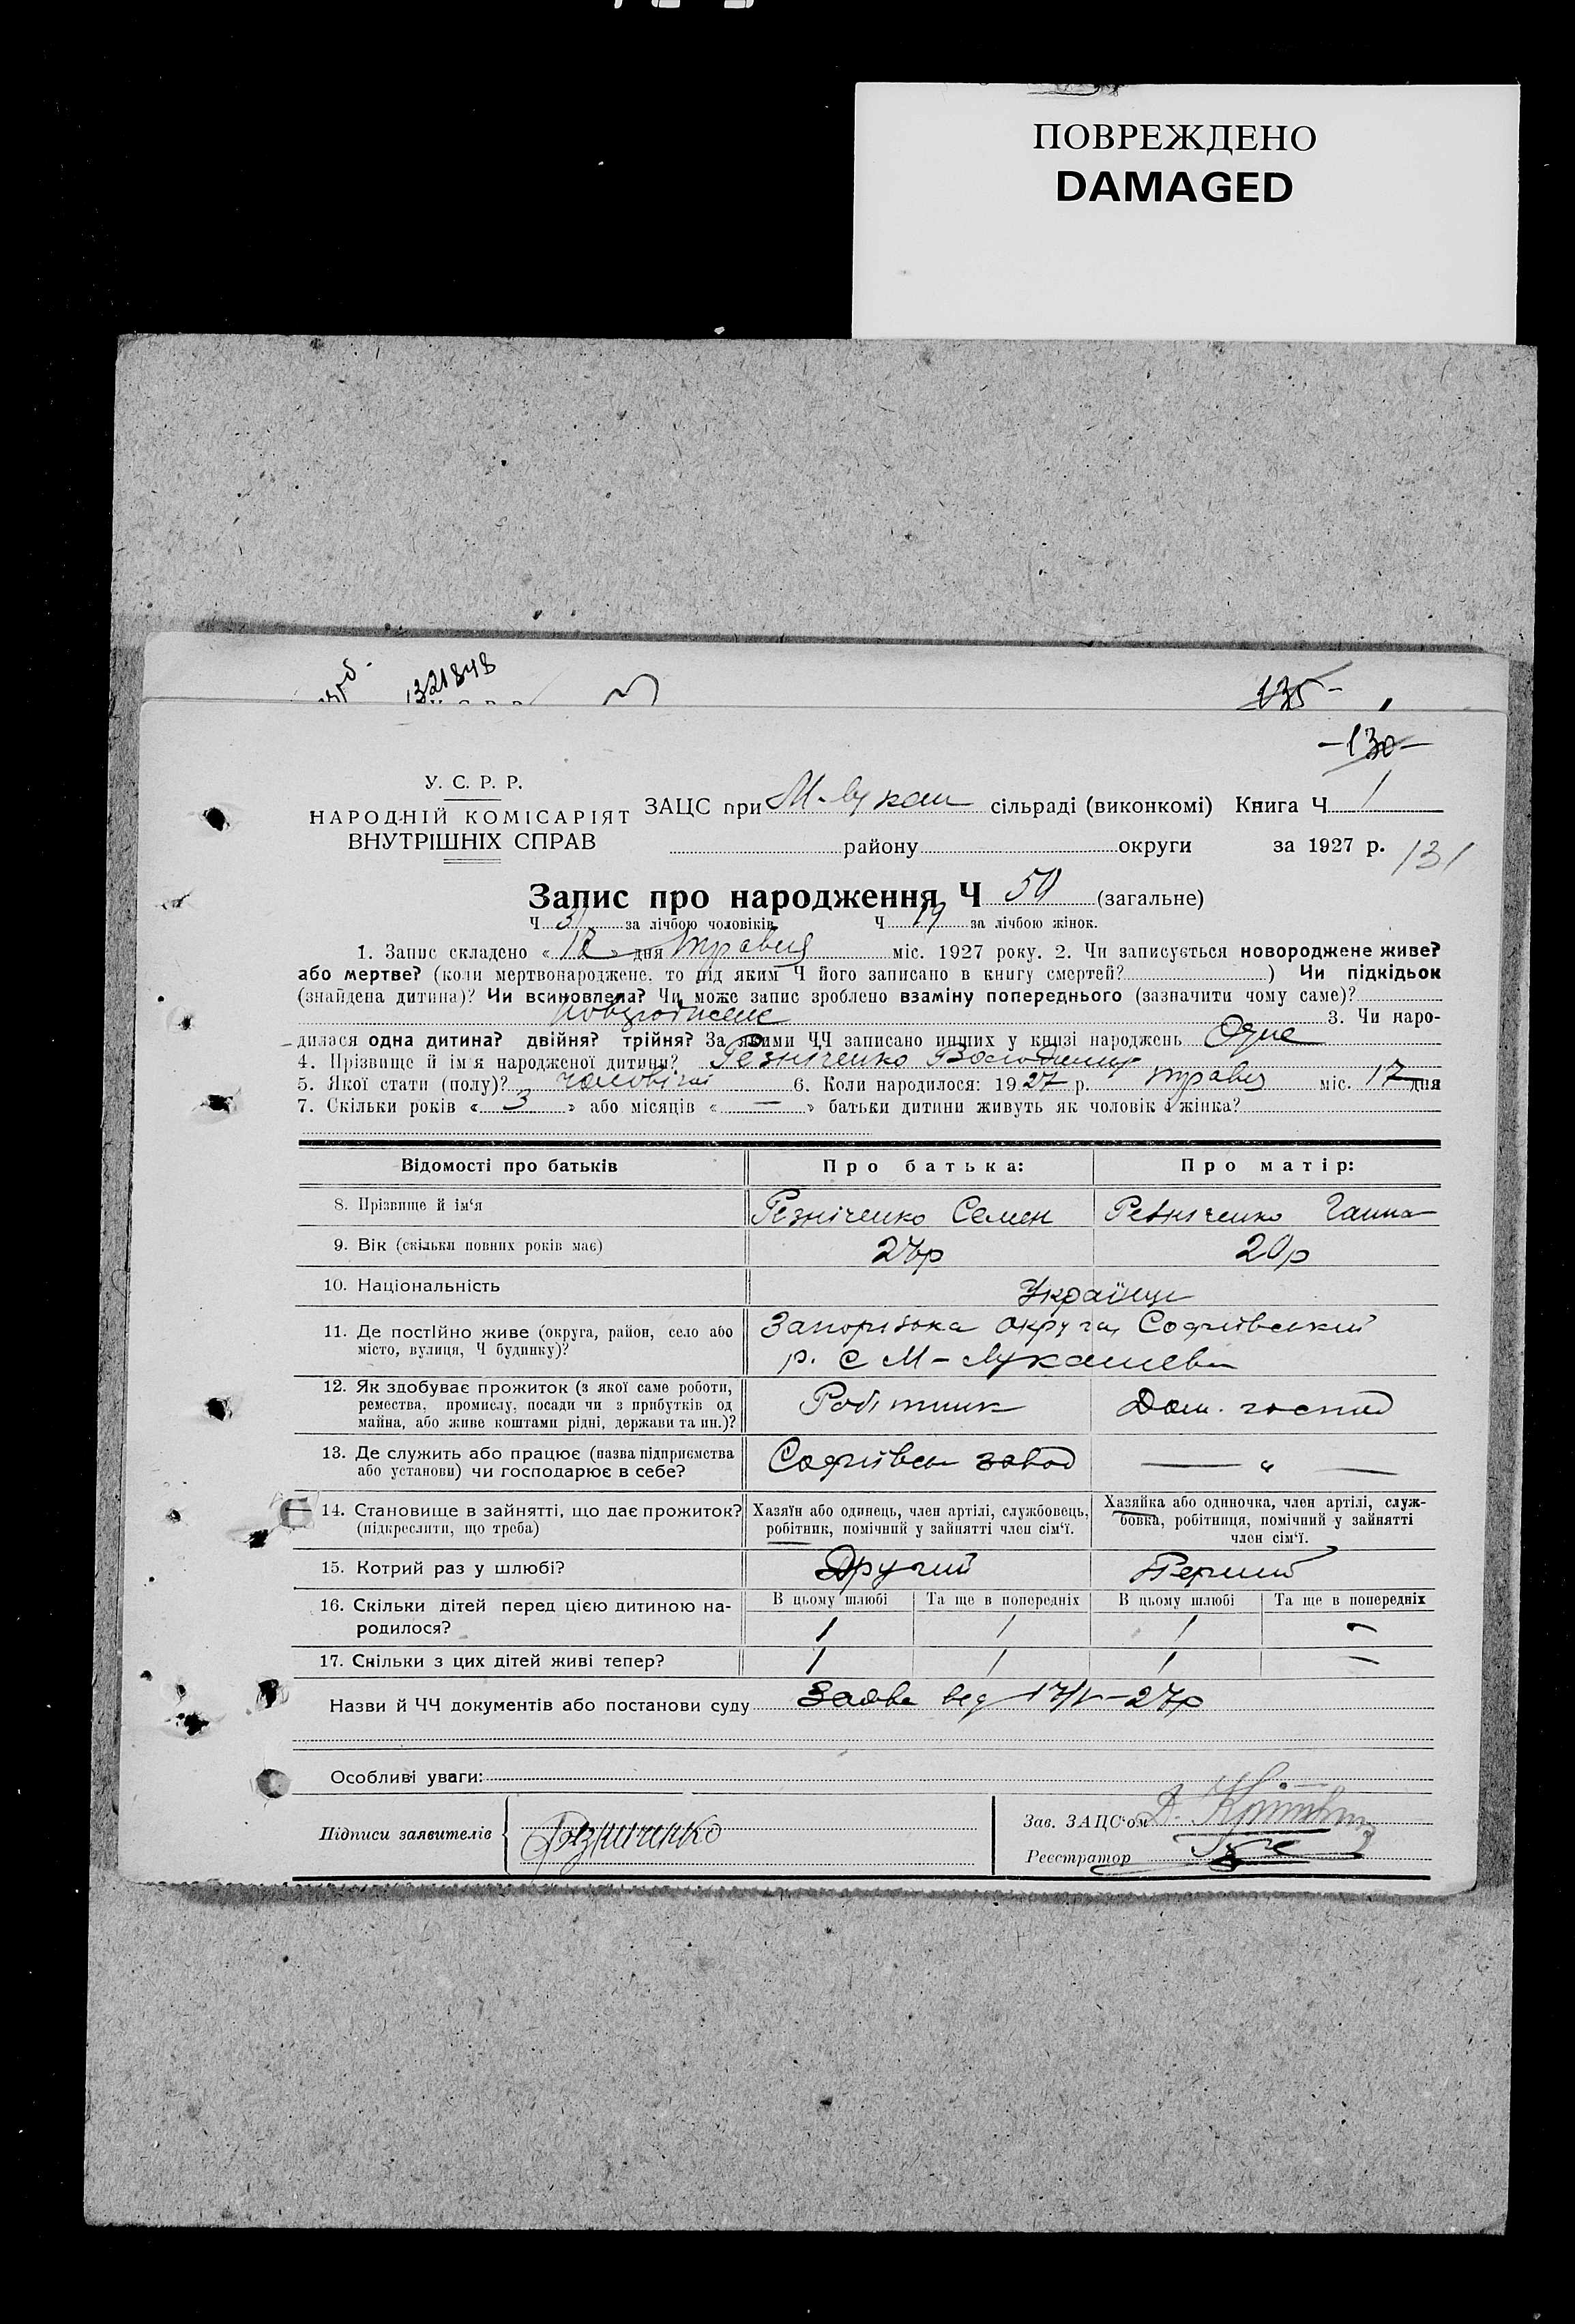 ПОВРЕЖДЕНО
DAMAGED
1321848
135-
-130-
У. С. Р. Р.
НАРОДНІЙ КОМІСАРІЯТ
ВНУТРІШНІХ СПРАВ
ЗАЦС при М-Лукаш сільраді (виконкомі) Книга Ч 1
району округи за 1927 р. 131
Запис про народження Ч 50 (загальне)
Ч 31 за лічбою чоловіків Ч 19 за лічбою жінок.
1. Запис складено « 18 » дня травця міс. 1927 року. 2. Чи записується новороджене живе?
або мертве? (коли мертвонароджене, то під яким Ч його записано в книгу смертей? ) Чи підкідьок
(знайдена дитина)? Чи всиновлена? Чи може запис зроблено взаміну попереднього (зазначити чому саме)?
3. Чи наро-
дилася одна дитина? двійня? трійня? За якими ЧЧ записано инших у книзі народжень Одне
4. Прізвище й ім'я народженої дитини? Резніченко Володимир
5. Якої стати (полу)? чоловічої 6. Коли народилося: 1927 р. травця міс. 17 дня
7. Скільки років « 3 » або місяців « — » батьки дитини живуть як чоловік й жінка?
Відомості про батьків Про батька: Про матір:
8. Прізвище й ім'я Резніченко Семен Резніченко Ганна
9. Вік (скільки повних років має) 27р 20р
10. Національність Українці
11. Де постійно живе (округа, район, село або місто, вулиця, Ч будинку)? Запорізька округа, Софиївський
р. с М-Лукашеви
12. Як здобуває прожиток (з якої саме роботи, ремества, промислу, посади чи з прибутків од майна, або живе коштами рідні, держави та ин.)? Робітник Дом. господ
13. Де служить або працює (назва підприємства або установи) чи господарює в себе? Софиївськ завод — „ —
14. Становище в зайнятті, що дає прожиток? (підкреслити, що треба) Хазяїн або одинець, член артілі, службовець, робітник, помічний у зайнятті член сім'ї. Хазяйка або одиночка, член артілі, служ-бовка, робітниця, помічний у зайнятті член сім'ї.
15. Котрий раз у шлюбі? Другий Перший
В цьому шлюбі Та ще в попередніх В цьому шлюбі Та ще в попередніх
16. Скільки дітей перед цією дитиною на-родилося? 1 1 1 —
17. Скільки з цих дітей живі тепер? 1 1 1 —
Назви й ЧЧ документів або постанови суду Заява від 17/V-27р
Особливі уваги:
Підписи заявителів Рэзниченко
Зав. ЗАЦС'ом
Реєстратор